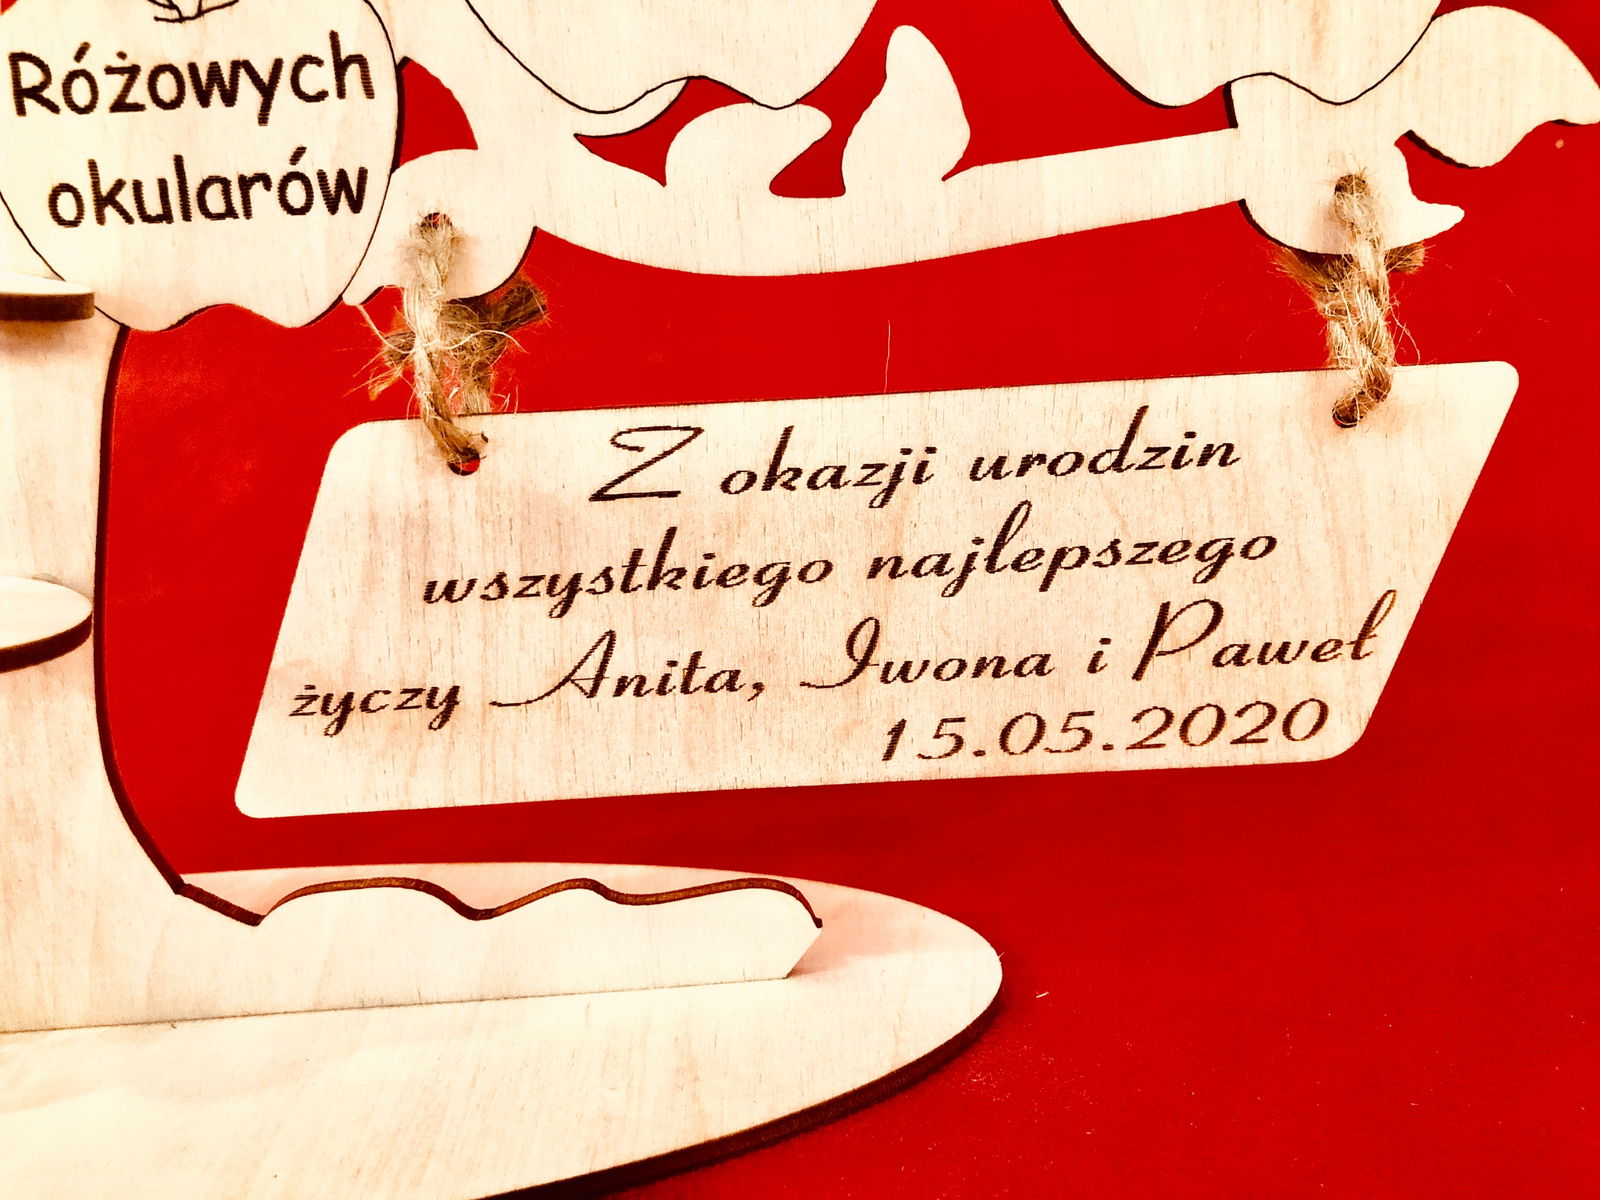 Różowych
okularów
Z okazji urodzin
wszystkiego najlepszego
życzy Anita, Iwona i Paweł
15.05.2020